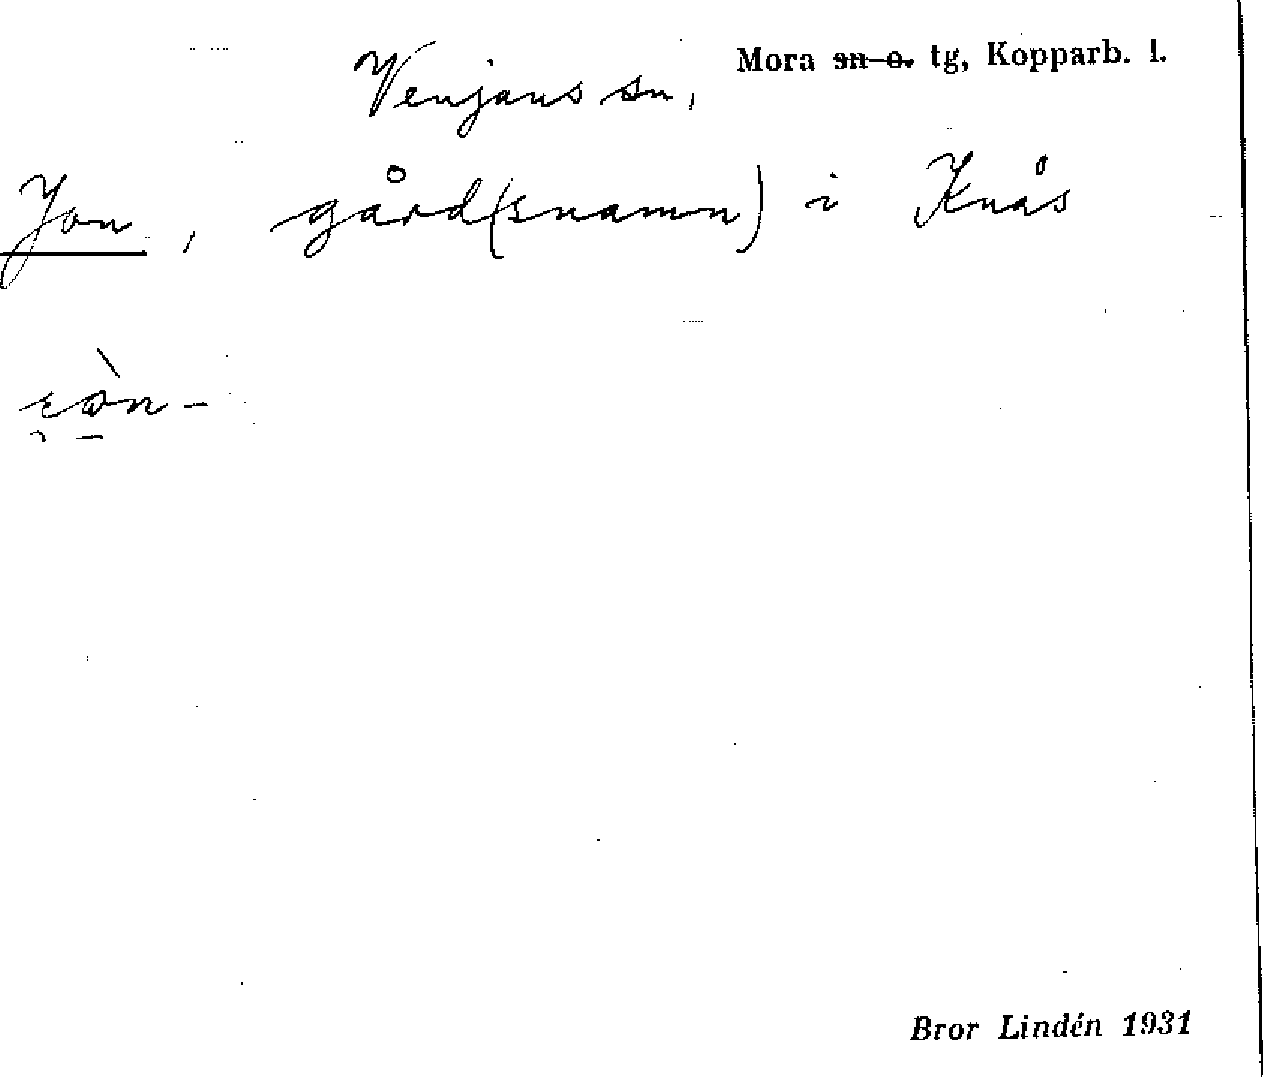 Venjans sn, Mora ~~sn o.~~ tg, Kopparb. l.
Jon, gård(snamn) i Knås
Bror Lindén 1931